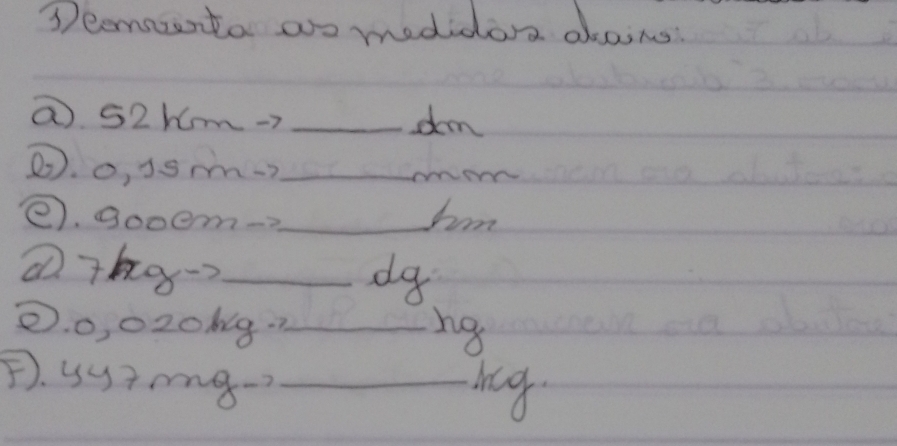 1) Converta as medidas abaixo:
a). 52 Km → ______ dm
b). 0,15 m → ______ mm
c). 900 cm → ______ hm
d) 7 kg → ______ dg.
e). 0,020 kg → ______ hg
F). 447 mg → ______ kg.